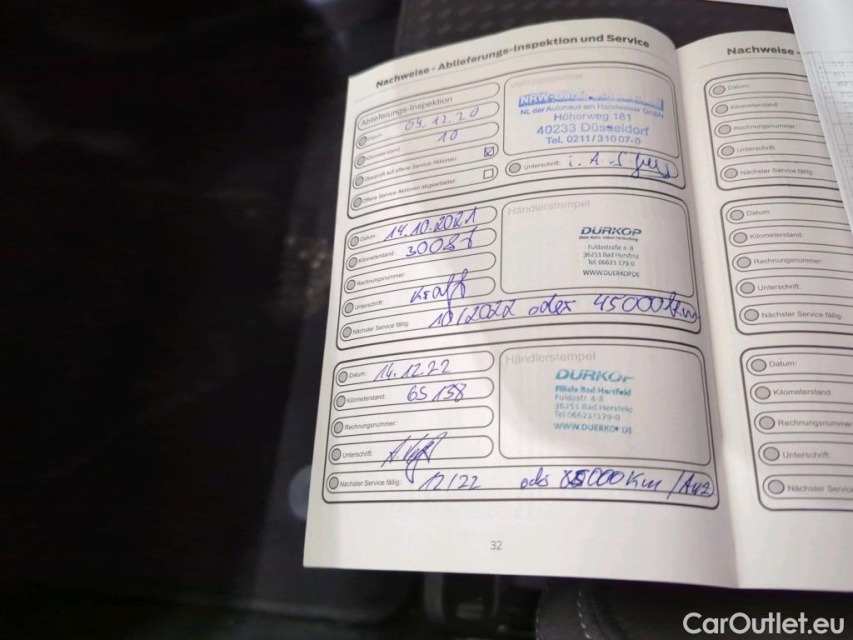 Nachweise - Ablieferungs-Inspektion und Service
Ablieferungs-Inspektion
Datum: 04.12.20
Kilometerstand: 10
Überprüft auf offene Service Aktionen
Offene Service Aktionen abgearbeitet
NL der Autohaus am Handweiser GmbH
Höherweg 181
40233 Düsseldorf
Tel. 0211/31007-0
Unterschrift: i.A.
Datum: 14.10.2021
Kilometerstand:
Rechnungsnummer:
Unterschrift: Kraft
Nächster Service fällig: 10/2022 oder 45000 km
Händlerstempel
DÜRKOP
Fuldastraße 4-8
36251 Bad Hersfeld
Tel. 06621 179-0
WWW.DUERKOP.DE
Datum: 14.12.22
Kilometerstand: 65 138
Rechnungsnummer:
Unterschrift:
Nächster Service fällig: 12/22 km
Händlerstempel
DÜRKOP
Filiale Bad Hersfeld
Fuldastr. 4-8
36251 Bad Hersfeld
Tel 06621/179-0
WWW.DUERKOP.DE
32
Nachweise -
Datum:
Kilometerstand:
Rechnungsnummer:
Unterschrift:
Nächster Service fällig:
Datum:
Kilometerstand:
Rechnungsnummer:
Unterschrift:
Nächster Service fällig:
Datum:
Kilometerstand:
Rechnungsnummer
Unterschrift:
Nächster Service
CarOutlet.eu